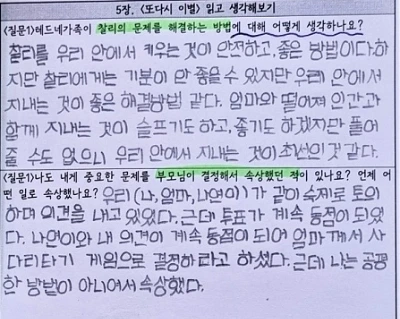 5장. <또다시 이별> 읽고 생각해보기
<질문1>테드네가족이 찰리의 문제를 해결하는 방법에 대해 어떻게 생각하나요?
찰리를 우리 안에서 키우는 것이 안전하고, 좋은 방법이다.하
지만 찰리에게는 기분이 안 좋을 수 있지만 우리 안에서
지내는 것이 좋은 해결방법 같다. 엄마와 떨어져 인간과
함께 지내는 것이 슬프기도 하고, 좋기도 하겠지만 풀어
줄 수도 없으니 우리 안에서 지내는 것이 최선인 것 같다.
<질문1>나도 내게 중요한 문제를 부모님이 결정해서 속상했던 적이 있나요? 언제 어
떤 일로 속상했나요? 우리(나,엄마,나연이)가 같이 숙제로 토의
하며 의견을 내고 있었다. 근데 투표가 계속 동점이 되었
다. 나연이와 내 의견이 계속 동점이 되어 엄마께서 사
다리타기 게임으로 결정하라고 하셨다. 근데 나는 공평
한 방법이 아니어서 속상했다.